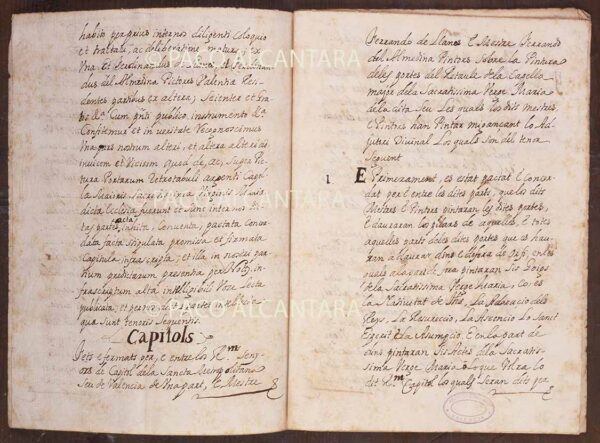 habito per prius inter nos diligenti Coloquio
et tractatu, ac deliberatione moturi, ex
Una et Ferdinandus de Llanes, et Ferdinan
dus del Almedina Pictores Valentiæ Resi
dentes partibus ex altera; Scienter et Gra
tis &c. Cum pnti publico instrumento &c.
Confitemur et in veritate Recognoscimus
Una pars nostrum alteri, et altera alteri ad
invicem et Vicissim
tura Portarum Retrotabuli Capel
læ Maioris Sacratissimæ Virginis Mariæ
dictæ Ecclesiæ fuerunt et sunt inter nos
tas partes inhita, Conventa, pactata Concor
data facta stipulata promissa et firmata
Capitula infrascripta; et illa in nostri par
tium predictarum presentia per Not. in
frascriptum alta intelligibili Voce Lecta
publicata, et per
qua sunt tenoris Sequentis.
Capitols
fets e fermats per, e entre los R.m Sen
yors de Capitol de la Sancta Metropolitana
Seu de Valencia de Una part, E Mestre
Ferrando de Llanos E Mestre Ferrando
del Almedina Pintors Sobre la Pintura
de les portes del Retaule de la Capella
major de la Sacratissima Verge Maria
de la dita Seu. Les quals los dits mestres
e Pintors han Pintar mijançant lo Ad
jutori Divinal Los quals són del tenor
Seguent
1. E Primerament, es estat pactat E Concor
dat per E entre les dites parts, que los dits
Mestres E Pintors pintaran les dites portes,
E dauraran los pilars de aquelles, E totes
aquelles parts de les dites portes que es hau
ran a daurar dins E defora de or fi, en les
quals a la part de fora pintaran Sis Goigs
de la Sacratissima Verge Maria, Co es
La Nativitat de La Adoracio dels
Reys, La Resurectio, La Ascencio Lo Sanct
Esperit E la Asumpcio. E en la part de
dins pintaran Sis Actes de la Sacratis
sima Verge Maria o lo que Volra Lo
dit R.m Capitol los quals Seran dits per
© PACO ALCANTARA
© PACO ALCANTARA
© PACO ALCANTARA